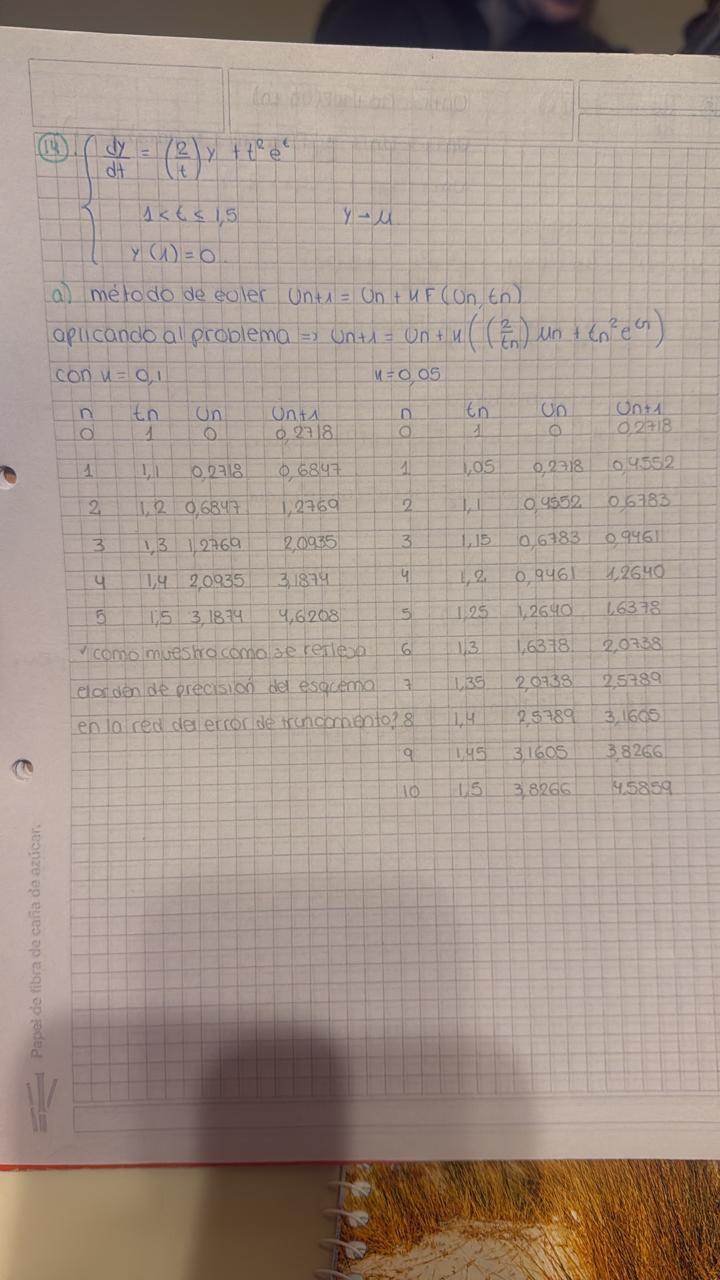 14) dy/dt = (2/t) y + t² eᵗ
1 < t ≤ 1,5 y → u
y (1) = 0
a) método de euler Un+1 = Un + u F(Un, tn)
aplicando al problema => Un+1 = Un + u((2/tn) un + tn² e^tn)
con u = 0,1 u = 0,05
n tn Un Un+1 n tn Un Un+1
0 1 0 0,2718 0 1 0 0,2718
1 1,1 0,2718 0,6847 1 1,05 0,2718 0,4552
2 1,2 0,6847 1,2769 2 1,1 0,4552 0,6783
3 1,3 1,2769 2,0935 3 1,15 0,6783 0,9461
4 1,4 2,0935 3,1874 4 1,2 0,9461 1,2640
5 1,5 3,1874 4,6208 5 1,25 1,2640 1,6378
como muestro como se refleja 6 1,3 1,6378 2,0738
el orden de precisión del esquema 7 1,35 2,0738 2,5789
en la red del error de truncamiento? 8 1,4 2,5789 3,1605
9 1,45 3,1605 3,8266
10 1,5 3,8266 4,5859
Papel de fibra de caña de azúcar.